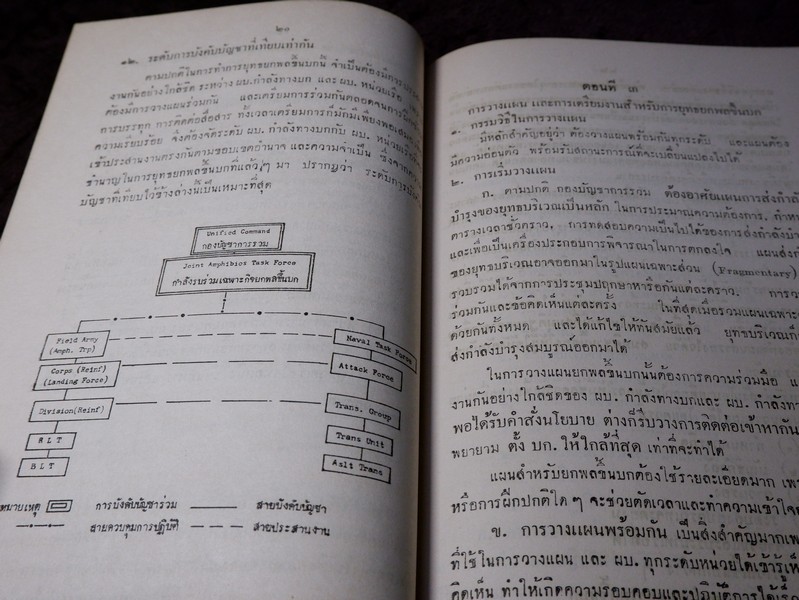 ๒๐
๑๒. ระดับการบังคับบัญชาที่เทียบเท่ากัน
ตามปกติในการทำการยุทธยกพลขึ้นบกนี้ จำเป็นต้องมีการ
งานกันอย่างใกล้ชิด ระหว่าง ผบ.กำลังทางบก และ ผบ. หน่วยเรือ
ต้องมีการวางแผนร่วมกัน และเตรียมการร่วมกันตลอดจนการ
การบรรทุก การติดต่อสื่อสาร
ความเรียบร้อย จึงต้องจัดระดับ ผบ. กำลังทางบกกับ ผบ.
เข้าประสานงานตรงกันตามขอบเขตอำนาจ และความจำเป็น ซึ่งจาก
ชำนาญในการยุทธยกพลขึ้นบกที่แล้วๆ มา ปรากฏว่า
บัญชาที่เทียบไว้ข้างล่างนี้เป็นเหมาะที่สุด
Unified Command
กองบัญชาการรวม
Joint Amphibios Task Force
กำลังรบร่วมเฉพาะกิจยกพลขึ้นบก
Field Army
(Amph. Trp)
Naval Task Force
Corps (Reinf)
(Landing Force)
Attack Force
Division(Reinf)
Trans. Group
RLT
Trans Unit
BLT
Aslt Trans
หมายเหตุ การบังคับบัญชาร่วม สายบังคับบัญชา
สายควบคุมการปฏิบัติ สายประสานงาน
ตอนที่ ๓
การวางแผน และการเตรียมงานสำหรับการยุทธยกพลขึ้นบก
๑. กรรมวิธีในการวางแผน
มีหลักสำคัญอยู่ว่า ต้องวางแผนพร้อมกันทุกระดับ และแผนต้อง
มีความอ่อนตัว พร้อมรับสถานะการณ์ที่จะเปลี่ยนแปลงไปได้
๒. การเริ่มวางแผน
ก. ตามปกติ กองบัญชาการรวม ต้องอาศัยแผนการส่งกำลัง
บำรุงของยุทธบริเวณเป็นหลัก ในการประมาณความต้องการ,
ตารางเวลาชั่วคราว, การทดสอบความเป็นไปได้ของการส่งกำลัง
และเพื่อเป็นเครื่องประกอบการพิจารณาในการตกลงใจ
ของยุทธบริเวณอาจออกมาในรูปแผนเฉพาะส่วน (Fragmentary)
รวบรวมได้จากการประชุมปฤกษาหารือกันแต่ละคราว.
ร่วมกันและข้อคิดเห็นแต่ละครั้ง ในที่สุดเมื่อรวมแผนเฉพาะ
ด้วยกันทั้งหมด และได้แก้ไขให้ทันสมัยแล้ว
ส่งกำลังบำรุงสมบูรณ์ออกมาได้
ในการวางแผนยกพลขึ้นบกนั้นต้องการความร่วมมือ
งานกันอย่างใกล้ชิดของ ผบ. กำลังทางบกและ ผบ.
พอได้รับคำสั่งนโยบาย ต่างก็รีบวางการติดต่อเข้าหากัน
พยายาม ตั้ง บก. ให้ใกล้ที่สุด เท่าที่จะทำได้
แผนสำหรับยกพลขึ้นบกต้องใช้รายละเอียดมาก
หรือการฝึกปกติใด ๆ จะช่วยตัดเวลาและทำความเข้าใจ
ข. การวางแผนพร้อมกัน เป็นสิ่งสำคัญมาก
ที่ใช้ในการวางแผน และ ผบ. ทุกระดับหน่วยได้เข้ารู้
คิดเห็น ทำให้เกิดความรอบคอบและปฏิบัติการได้